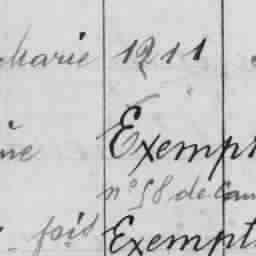 marie 1211
ne Exempt
n° 58 de Cam
fois Exempt